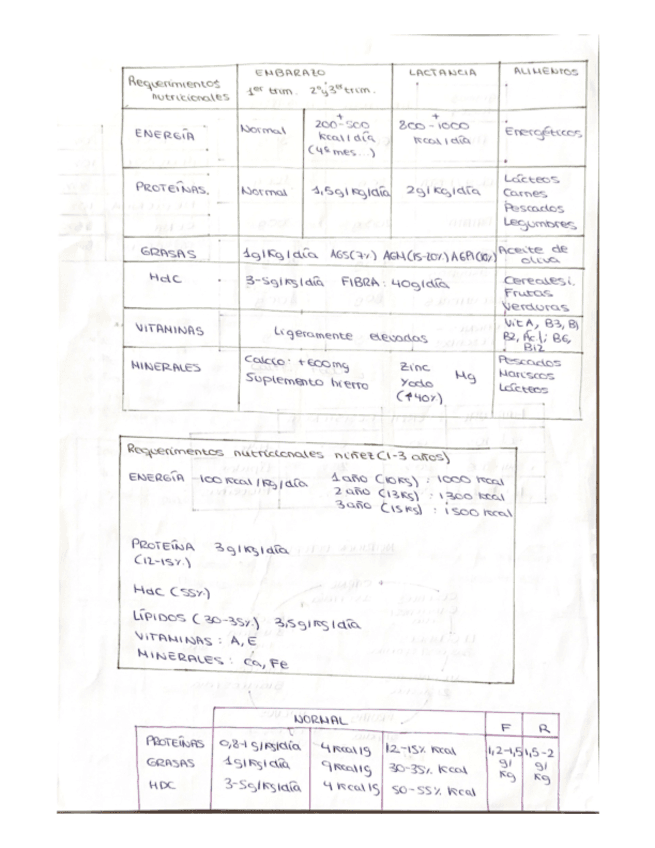 Requerimientos nutricionales EMBARAZO LACTANCIA ALIMENTOS
1er trim. 2º y 3er trim.
ENERGÍA Normal + 200-500 Kcal/día (4º mes...) + 800-1000 Kcal/día Energéticos
PROTEÍNAS. Normal 1,5g/Kg/día 2g/Kg/día Lácteos
Carnes
Pescados
Legumbres
GRASAS 1g/Kg/día AGS(7%) AGM(15-20%) AGPI(10%) Aceite de oliva
HdC 3-5g/Kg/día FIBRA: 40g/día Cereales i.
Frutas
Verduras
VITAMINAS Ligeramente elevadas Vit A, B3, B1
B2, Ác.f; B6,
B12
MINERALES Calcio: +600mg Zinc Mg Pescados
Suplemento hierro Yodo Mariscos
(↑40%) Lácteos
Requerimentos nutricionales niñez (1-3 años)
ENERGÍA -100 Kcal/Kg/día 1 año (10Kg) : 1000 Kcal
2 año (13Kg) : 1300 Kcal
3 año (15Kg) : 1500 Kcal
PROTEÍNA 3g/Kg/día
(12-15%)
HdC (55%)
LÍPIDOS (30-35%) 3,5g/Kg/día
VITAMINAS : A, E
MINERALES : Ca, Fe
NORMAL F R
PROTEÍNAS 0,8-1g/Kg/día 4 Kcal/g 12-15% Kcal 1,2-1,5 g/Kg 1,5-2 g/Kg
GRASAS 1g/Kg/día 9Kcal/g 30-35% Kcal
HDC 3-5g/Kg/día 4 Kcal/g 50-55% Kcal